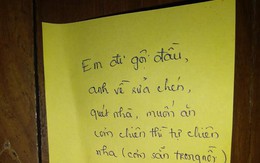 Em đi gội đầu,
anh về rửa chén,
quét nhà, muốn ăn
cơm chiên thì tự chiên
nha (cơm sẵn trong nồi)